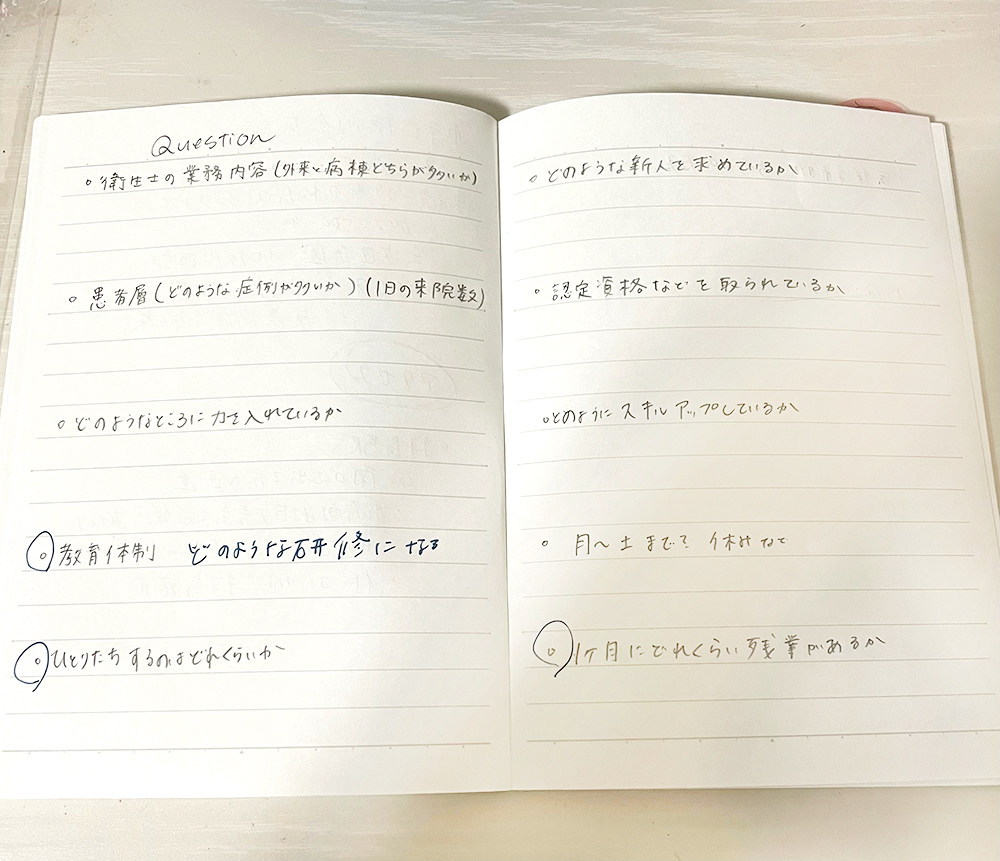 Question
○ 衛生士の業務内容(外来と病棟どちらが多いか)
○ 患者層(どのような症例が多いか)(1日の来院数)
○ どのようなところに力を入れているか
○ 教育体制 どのような研修になる
○ ひとりだちするのはどれくらいか
○ どのような新人を求めているか
○ 認定資格などを取られているか
○ どのようにスキルアップしているか
○ 月〜土まで? 休みなど
○ 1ヶ月にどれくらい残業があるか